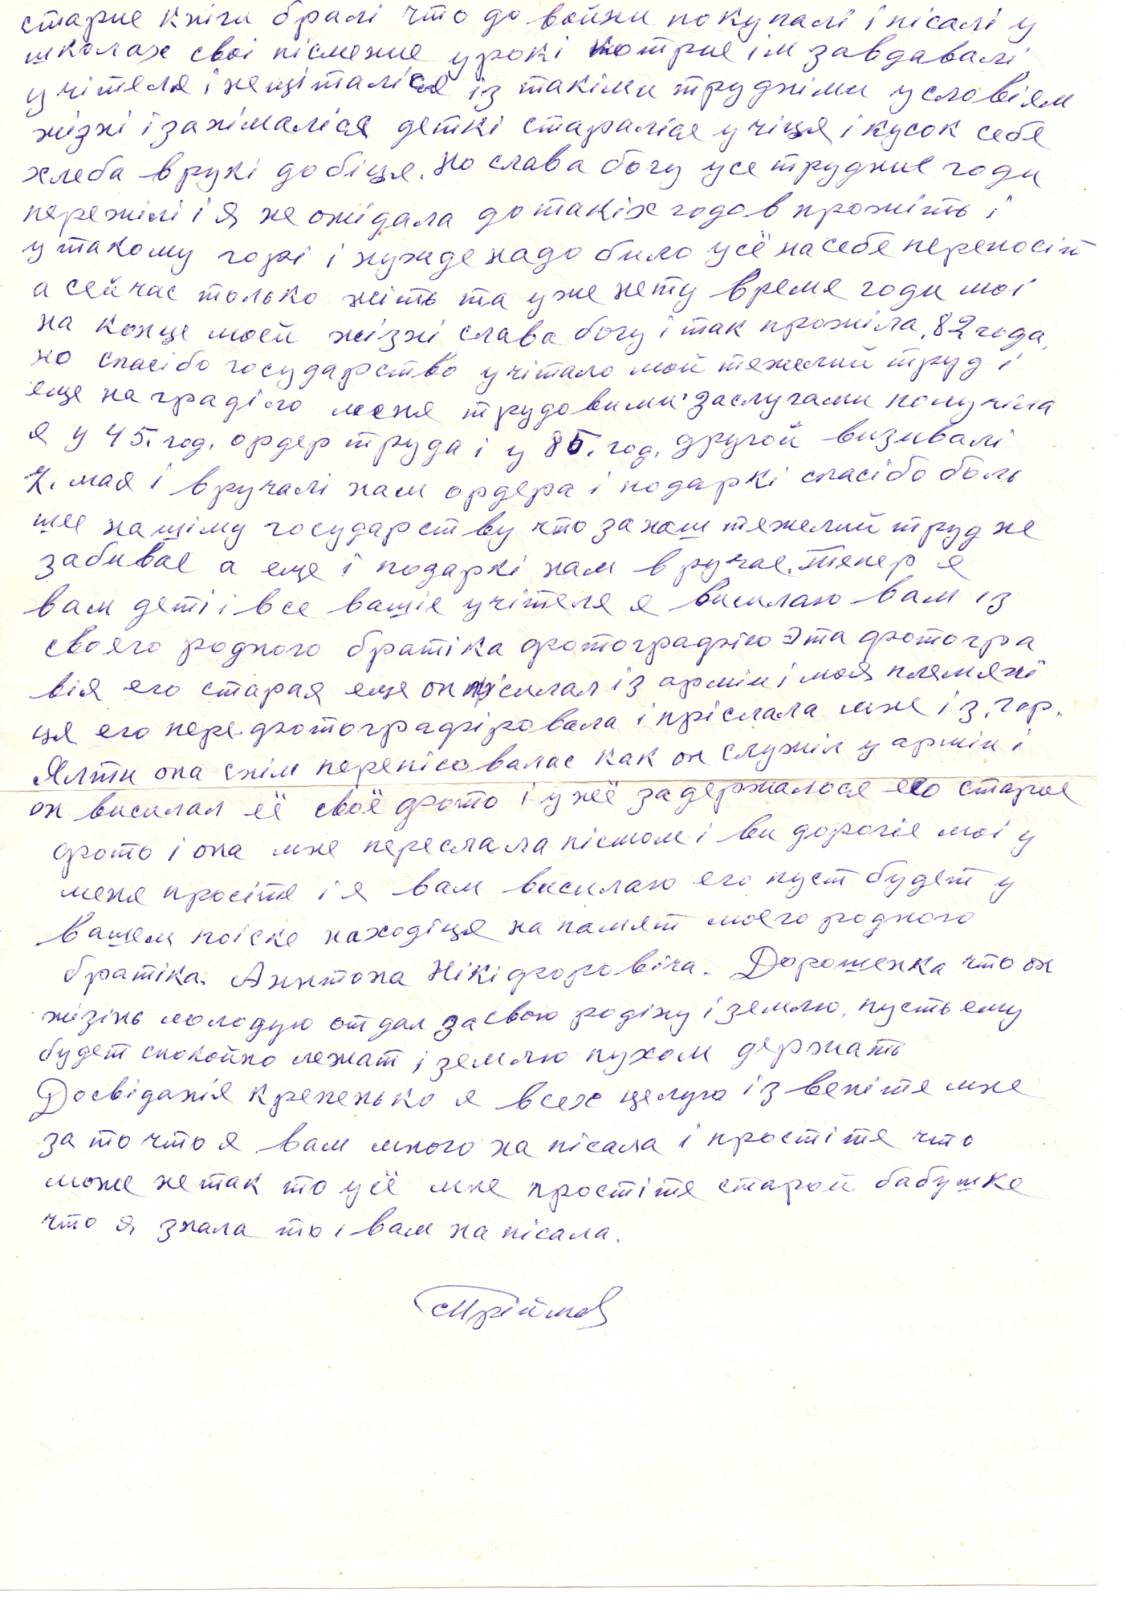 старие кніги бралі что до войни покупалі і пісалі у
школах свої пісмение урокі котрие ім завдавалі
учітеля і нещіталіся із такіми трудніми условіям
жізні ізанімаліся деткі стараліся учіця і кусок себе
хлеба вруки добіця. но слава богу усе трудние годи
пережілі і я не ожідала до такіх годов прожіть і
у такому горі і нужде надо било усё на себе переносіт
а сейчас только жіть та уже нету време годи мої
на конце моей жізні слава богу і так прожіла. 82 года,
но спасібо государство учітало мой тяжелий труд і
еще на градііло меня трудовими заслугами получіла
я у 45. год. ордер труда і у 85. год. другой визивалі
2. мая і вручалі нам ордера і подаркі спасібо боль
шее нашіму государству что за наш тяжелий труд не
забивае а еще і подаркі нам вручае. тепер я
вам деті і все вашіе учітеля я висилаю вам із
своего родного братіка фотографію эта фотогра
вія его старая еще он пісилал із армії і моя племяні
ця его перефотографіровала і пріслала мне із. гор.
Ялти она снім перепісовалас как он служіл у армії і
он висилал её своё фото і унеё задержалося его старое
фото і она мне переслала пісмом і ви дорогіе мої у
меня просіте і я вам висилаю его пуст будет у
вашем поіске находіця на памят моего родного
братіка. Анптона Нікіфоровіча. Дорошенка что он
жізінь молодую отдал засвою родіну і землю. пусть ему
будет спокойно лежат і землю пухом держать
Досвіданія крепенько я всех целую ізвеніте мне
за то что я вам много на пісала і простіте что
може нетак то усё мне простіте старой бабушке
что я знала то і вам на пісала.